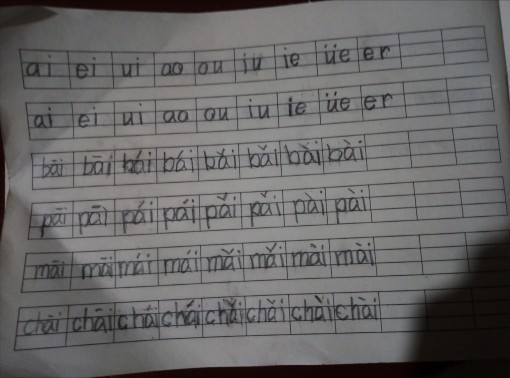 ai ei ui ao ou iu ie üe er
ai ei ui ao ou iu ie üe er
bāi bāi bái bái bǎi bǎi bài bài
pāi pāi pái pái pǎi pǎi pài pài
māi māi mái mái mǎi mǎi mài mài
chāi chāi chái chái chǎi chǎi chài chài